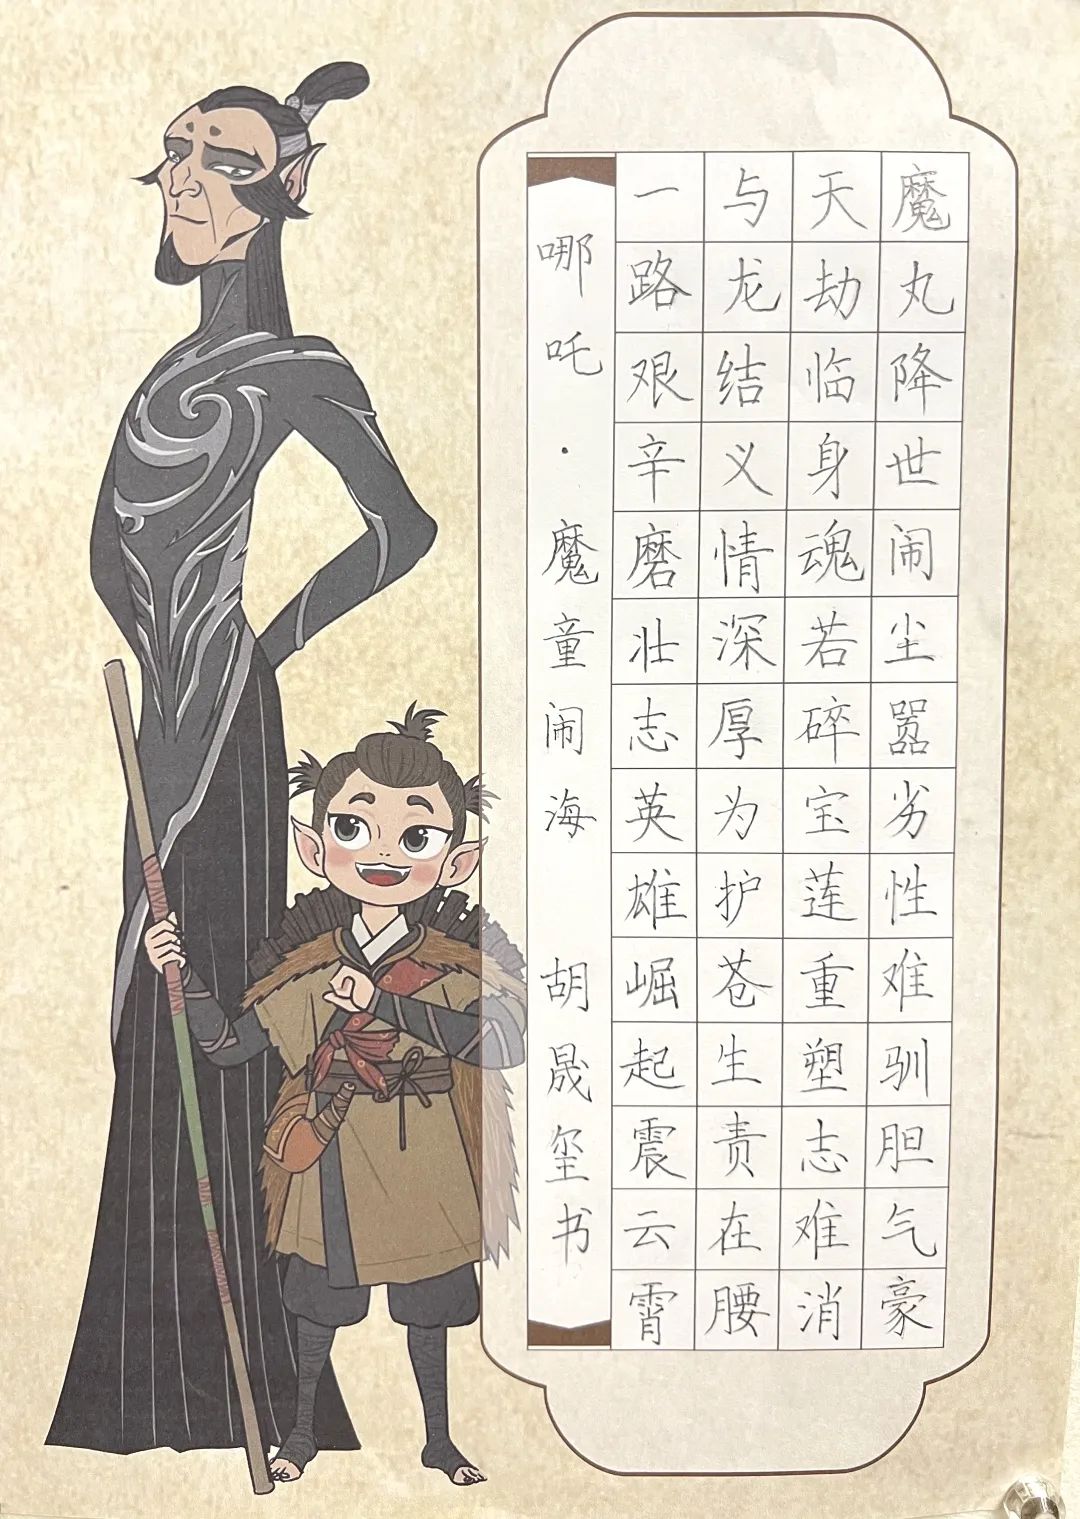 魔丸降世闹尘嚣劣性难驯胆气豪
天劫临身魂若碎宝莲重塑志难消
与龙结义情深厚为护苍生责在腰
一路艰辛磨壮志英雄崛起震云霄
哪吒·魔童闹海 胡晟玺书